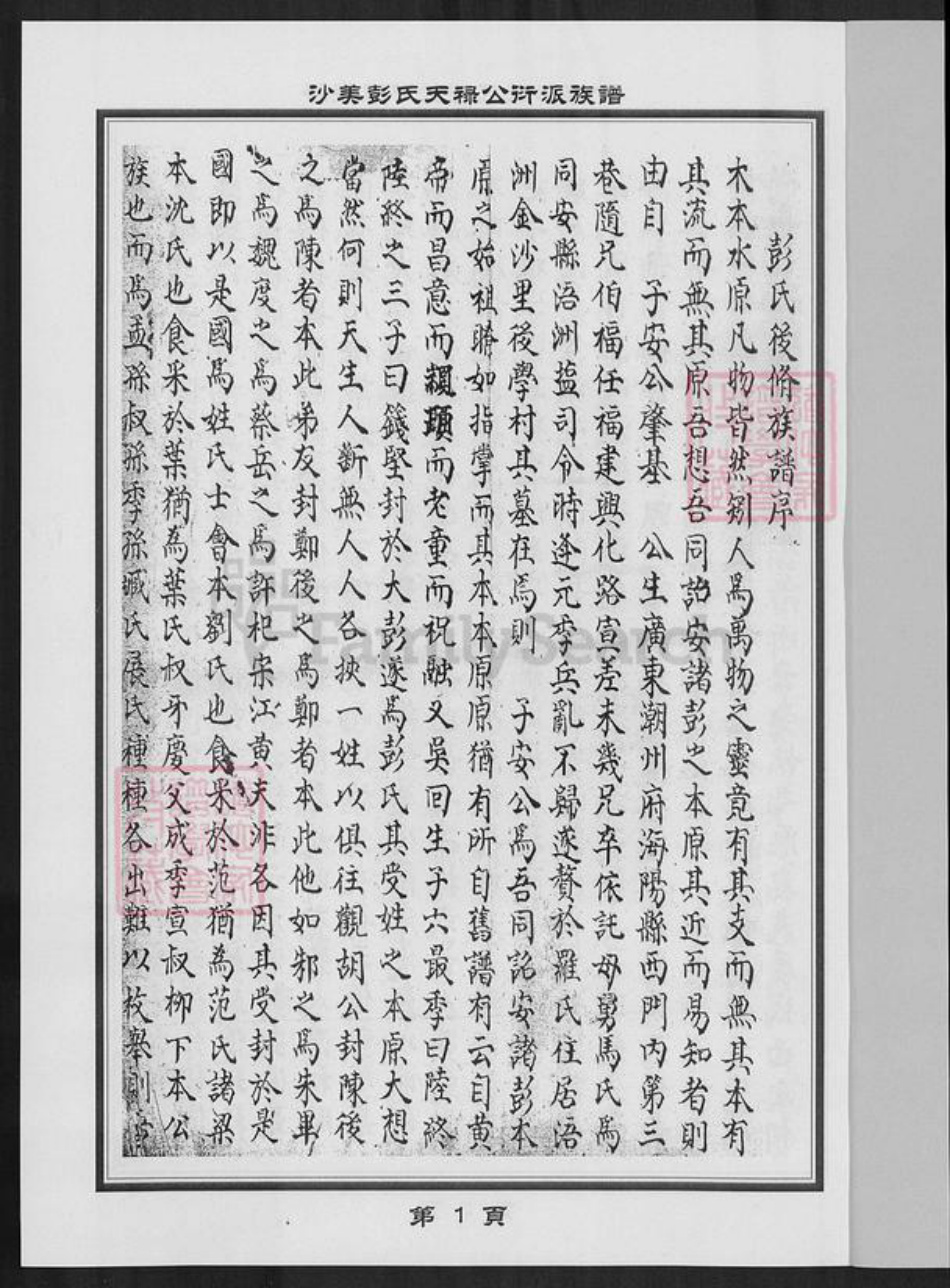 沙美彭氏天祿公衍派族譜
彭氏後脩族譜序
木本水原凡物皆然矧人為萬物之靈竟有其支而無其本有
其流而無其原吾想吾同詒安諸彭之本原其近而易知者則
由自 子安公肇基 公生廣東潮州府海陽縣西門內第三
巷隨兄伯福任福建興化路宣差未幾兄卒依託母舅馬氏為
同安縣浯洲塩司令時逢元季兵亂不歸遂贅於羅氏住居浯
洲金沙里後學村其墓在焉則 子安公為吾同詒安諸彭本
原之始祖瞭如指掌而其本本原原猶有所自舊譜有云自黃
帝而昌意而顓頊而老童而祝融又吳回生子六最季曰陸終
陸終之三子曰籛堅封於大彭遂為彭氏其受姓之本原大想
當然何則天生人斷無人人各挾一姓以俱往觀胡公封陳後
之為陳者本此弟友封鄭後之為鄭者本此他如邾之為朱畢
之為魏度之為蔡岳之為許杞宋江黃夫沛各因其受封於是
國即以是國為姓氏士會本劉氏也食采於范猶為范氏諸梁
本沈氏也食采於葉猶為葉氏叔牙慶父成季宣叔柳下本公
族也而為孟孫叔孫季孫臧氏展氏種種各出難以枚舉則
第 1 頁
FamilySearch